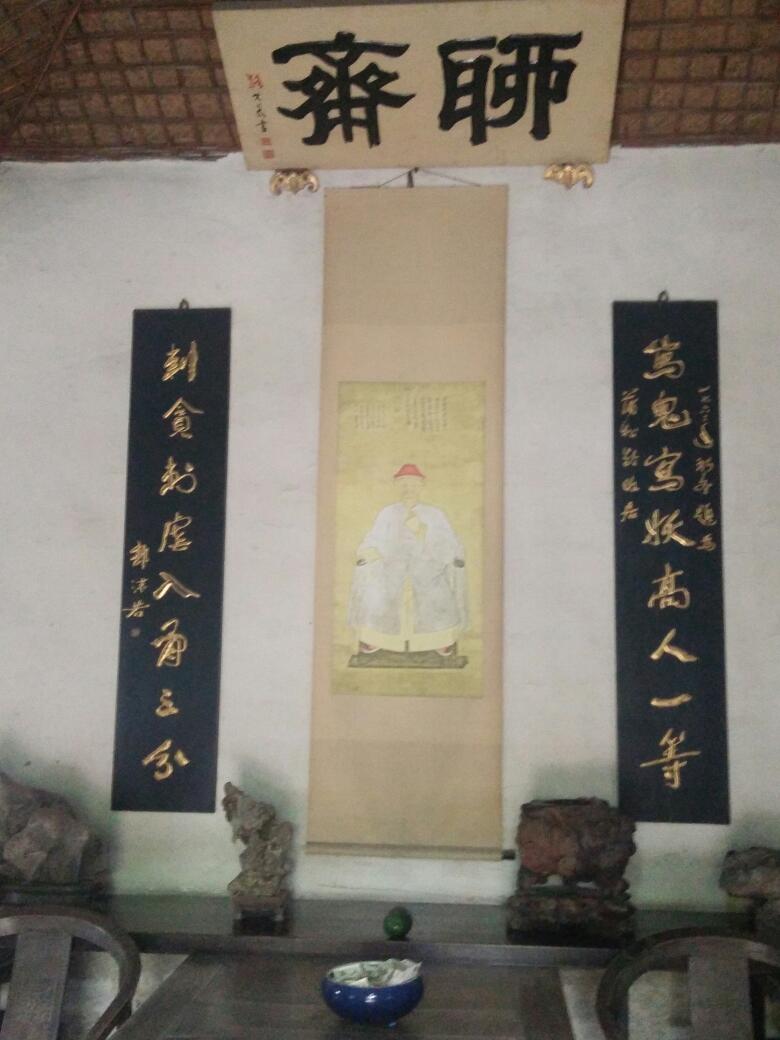 聊齋
路大荒書
寫鬼寫妖高人一等
一九六二年初冬題為
蒲松齡故居
刺貪刺虐入骨三分
郭沫若